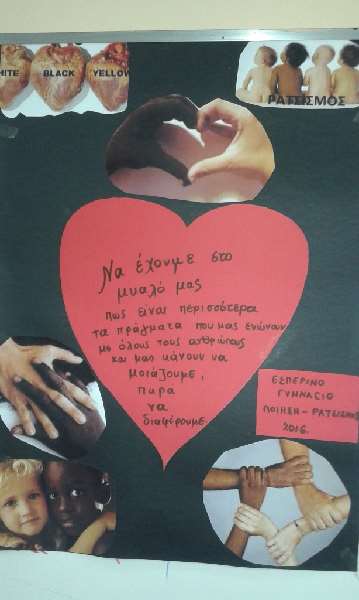 WHITE BLACK YELLOW
ΡΑΤΣΙΣΜΟΣ
Να έχουμε στο
μυαλό μας
πως είναι περισσότερα
τα πράγματα που μας ενώνουν
με όλους τους ανθρώπους
και μας κάνουν να
μοιάζουμε,
παρά
να
διαφέρουμε.
ΕΣΠΕΡΙΝΟ
ΓΥΜΝΑΣΙΟ
ΠΟΙΗΣΗ - ΡΑΤΣΙΣΜΟΣ
2016.